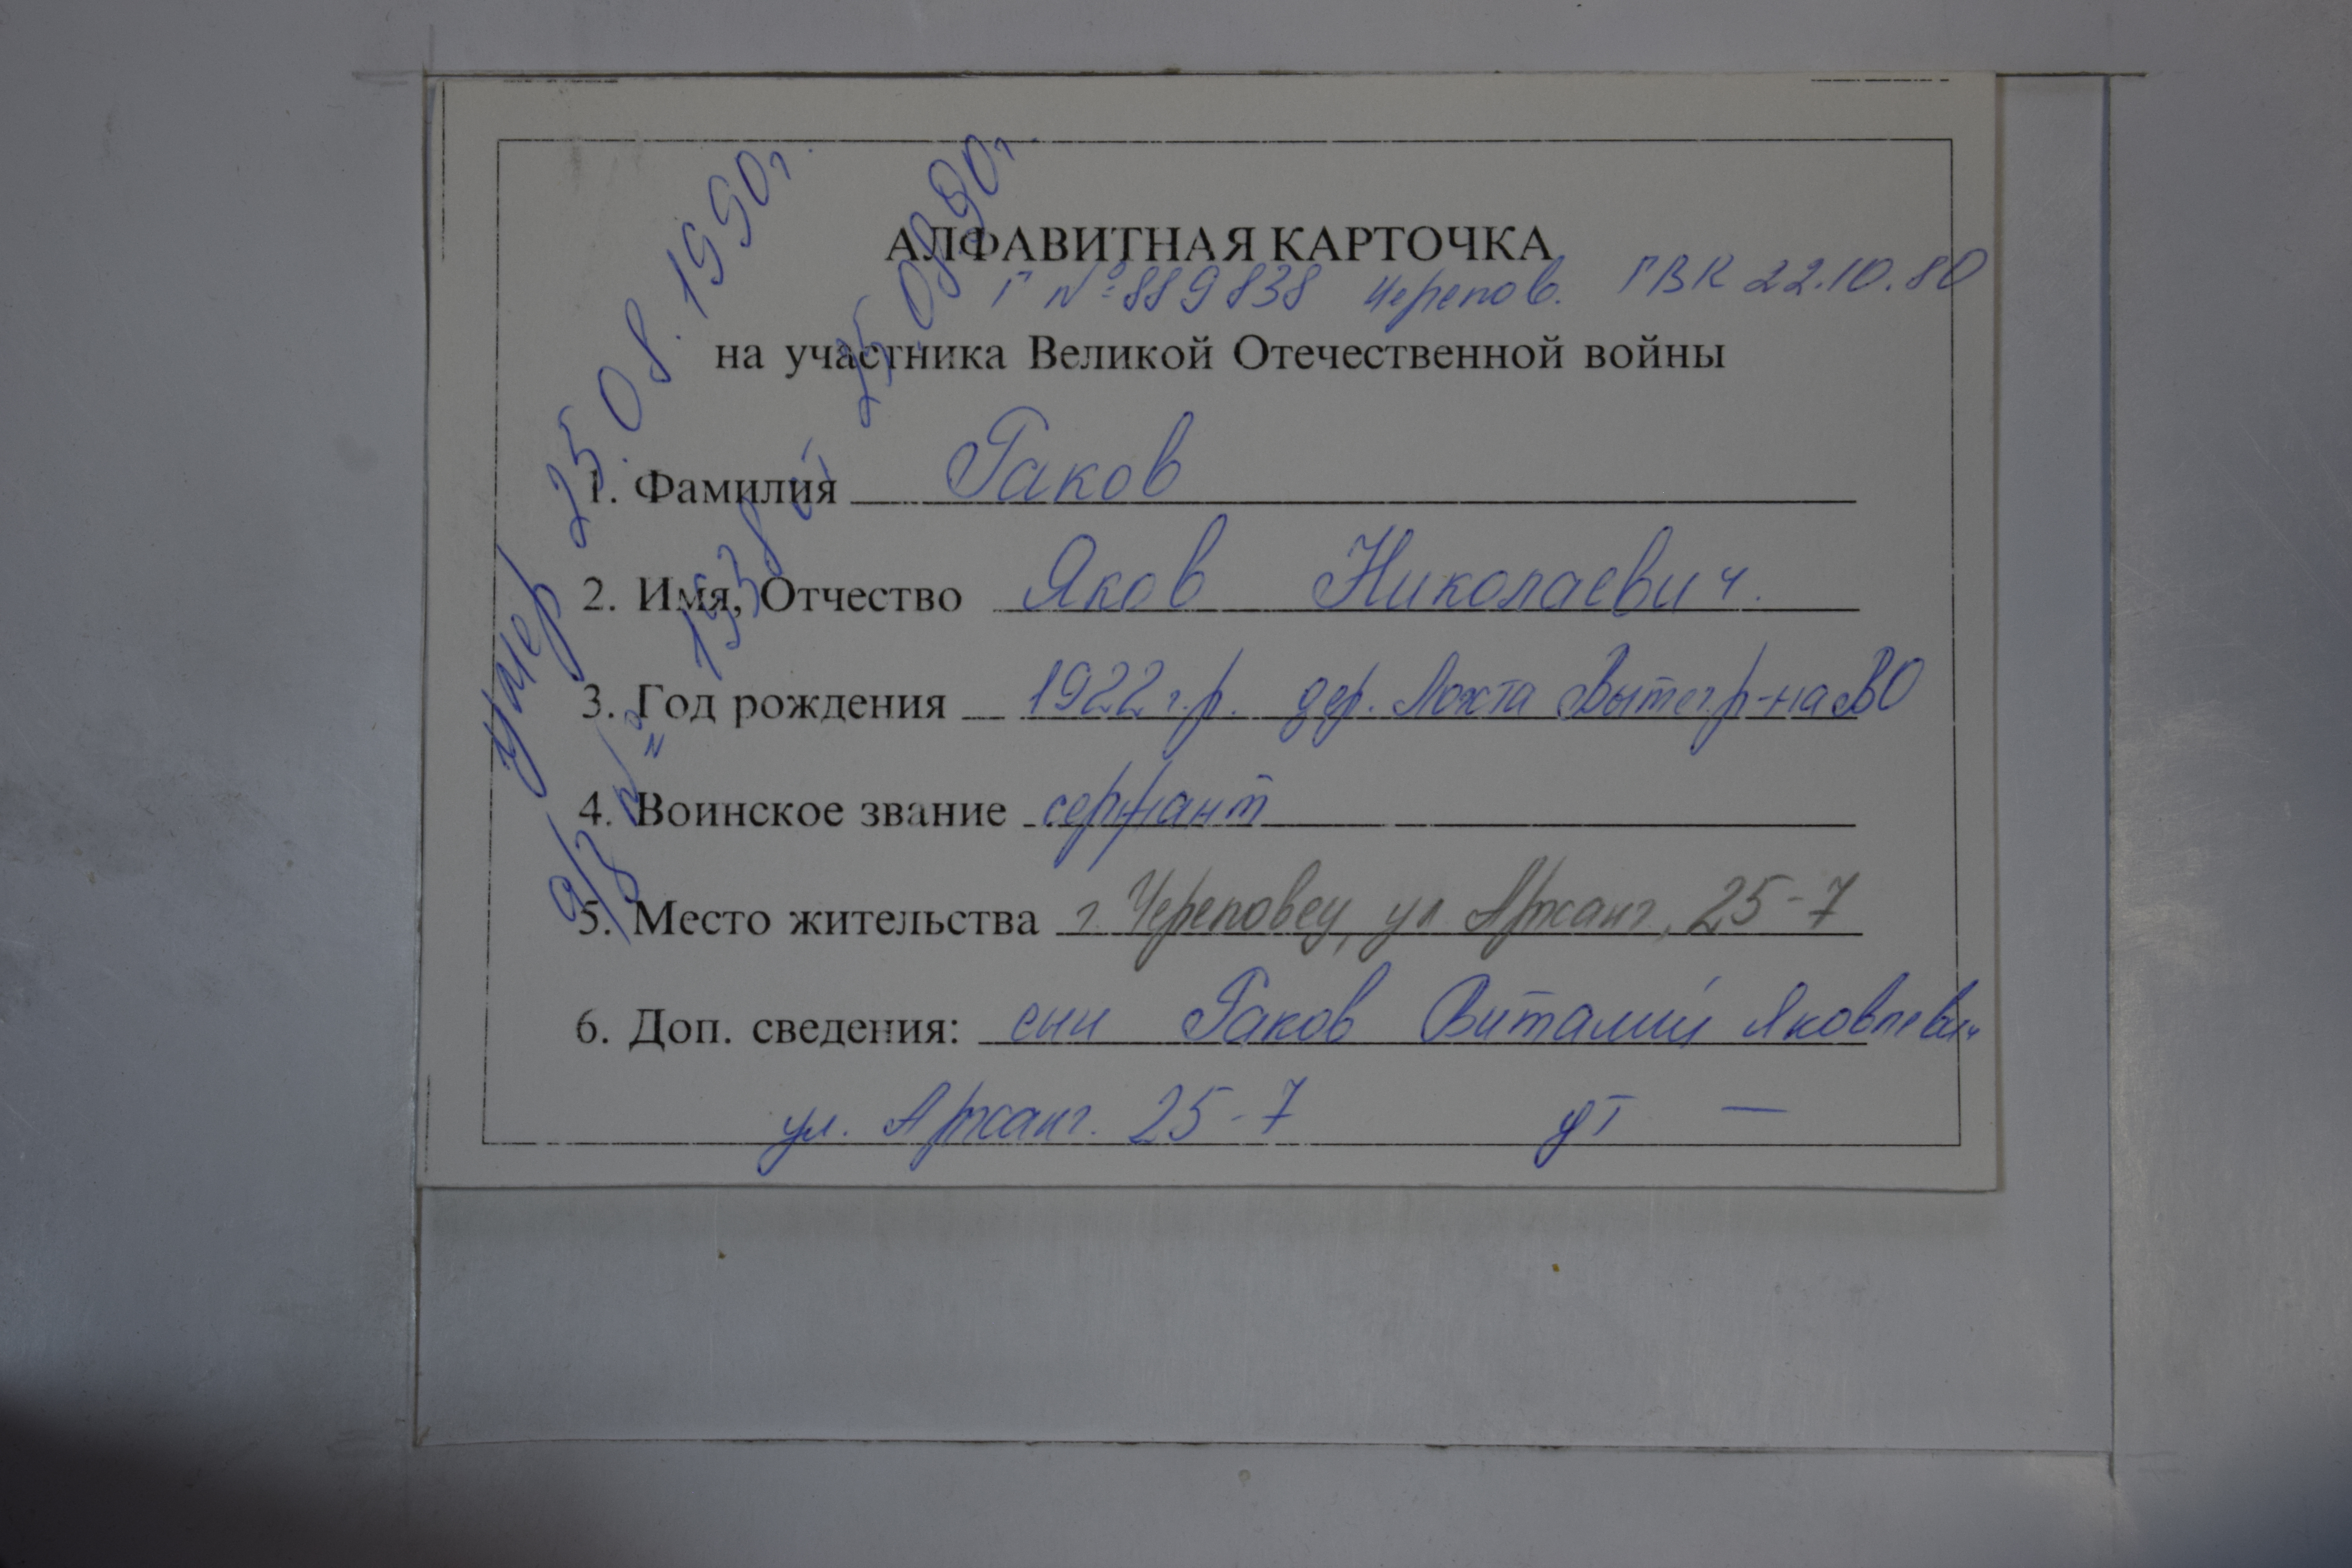 АЛФАВИТНАЯ КАРТОЧКА
Г №889838 Черепов. ГВК 22.10.80
на участника Великой Отечественной войны
1. Фамилия Раков
2. Имя, Отчество Яков Николаевич.
3. Год рождения 1922 г.р. дер. Лохта Вытег.р-на ВО
4. Воинское звание сержант
5. Место жительства г. Череповец, ул Арханг., 25-7
6. Доп. сведения: сын Раков Виталий Яковлевич
ул. Арханг. 25-7 дт —
умер 25.08.1990г.
а/з № 1938 от 25.08.90г.